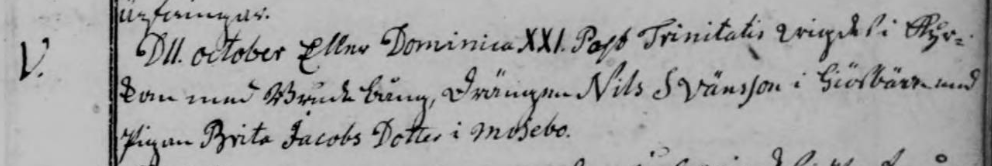 V. D 11. october Eller Dominica XXI. Post Trinitatis wigdes i Kyr-
kan med Brude bäng, Drängen Nils Svänsson i Giösbärn med
Pigan Brita Jacobs Dotter i Mosebo.